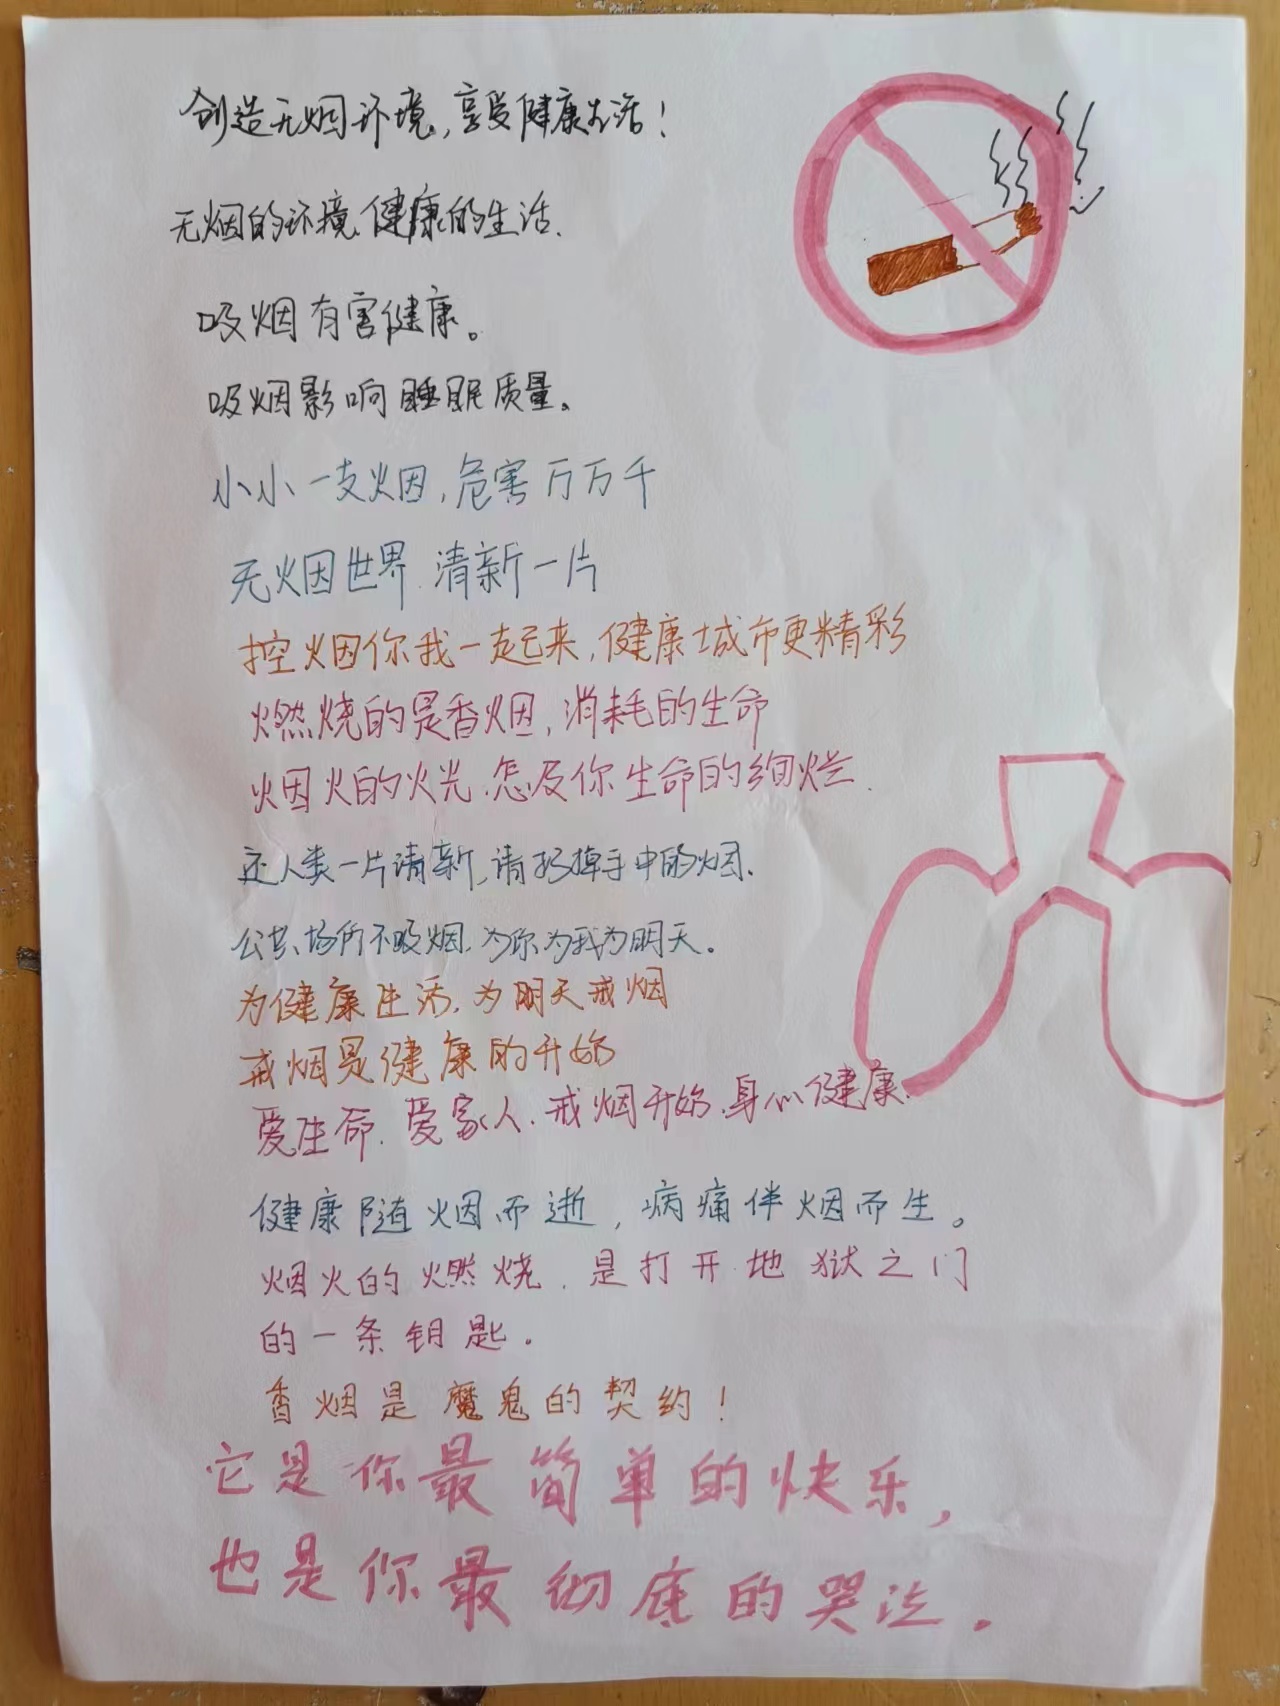 创造无烟环境,享受健康生活!
无烟的环境,健康的生活.
吸烟有害健康。
吸烟影响睡眠质量。
小小一支烟,危害万万千
无烟世界.清新一片
控烟你我一起来,健康城市更精彩
燃烧的是香烟,消耗的生命
烟火的火光.怎及你生命的绚烂.
还人类一片清新,请扔掉手中的烟.
公共场所不吸烟.为你为我为明天。
为健康生活.为明天戒烟
戒烟是健康的开始
爱生命.爱家人.戒烟开始.身心健康.
健康随烟而逝,病痛伴烟而生。
烟火的燃烧.是打开地狱之门
的一条钥匙.
香烟是魔鬼的契约!
它是你最简单的快乐,
也是你最彻底的哭泣.